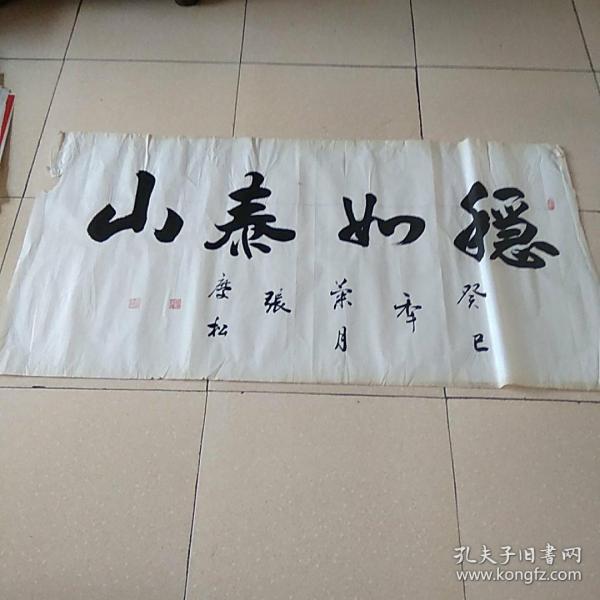 穩如泰山
癸巳
年
葉月
張
慶松
孔夫子旧書网
www.kongfz.com